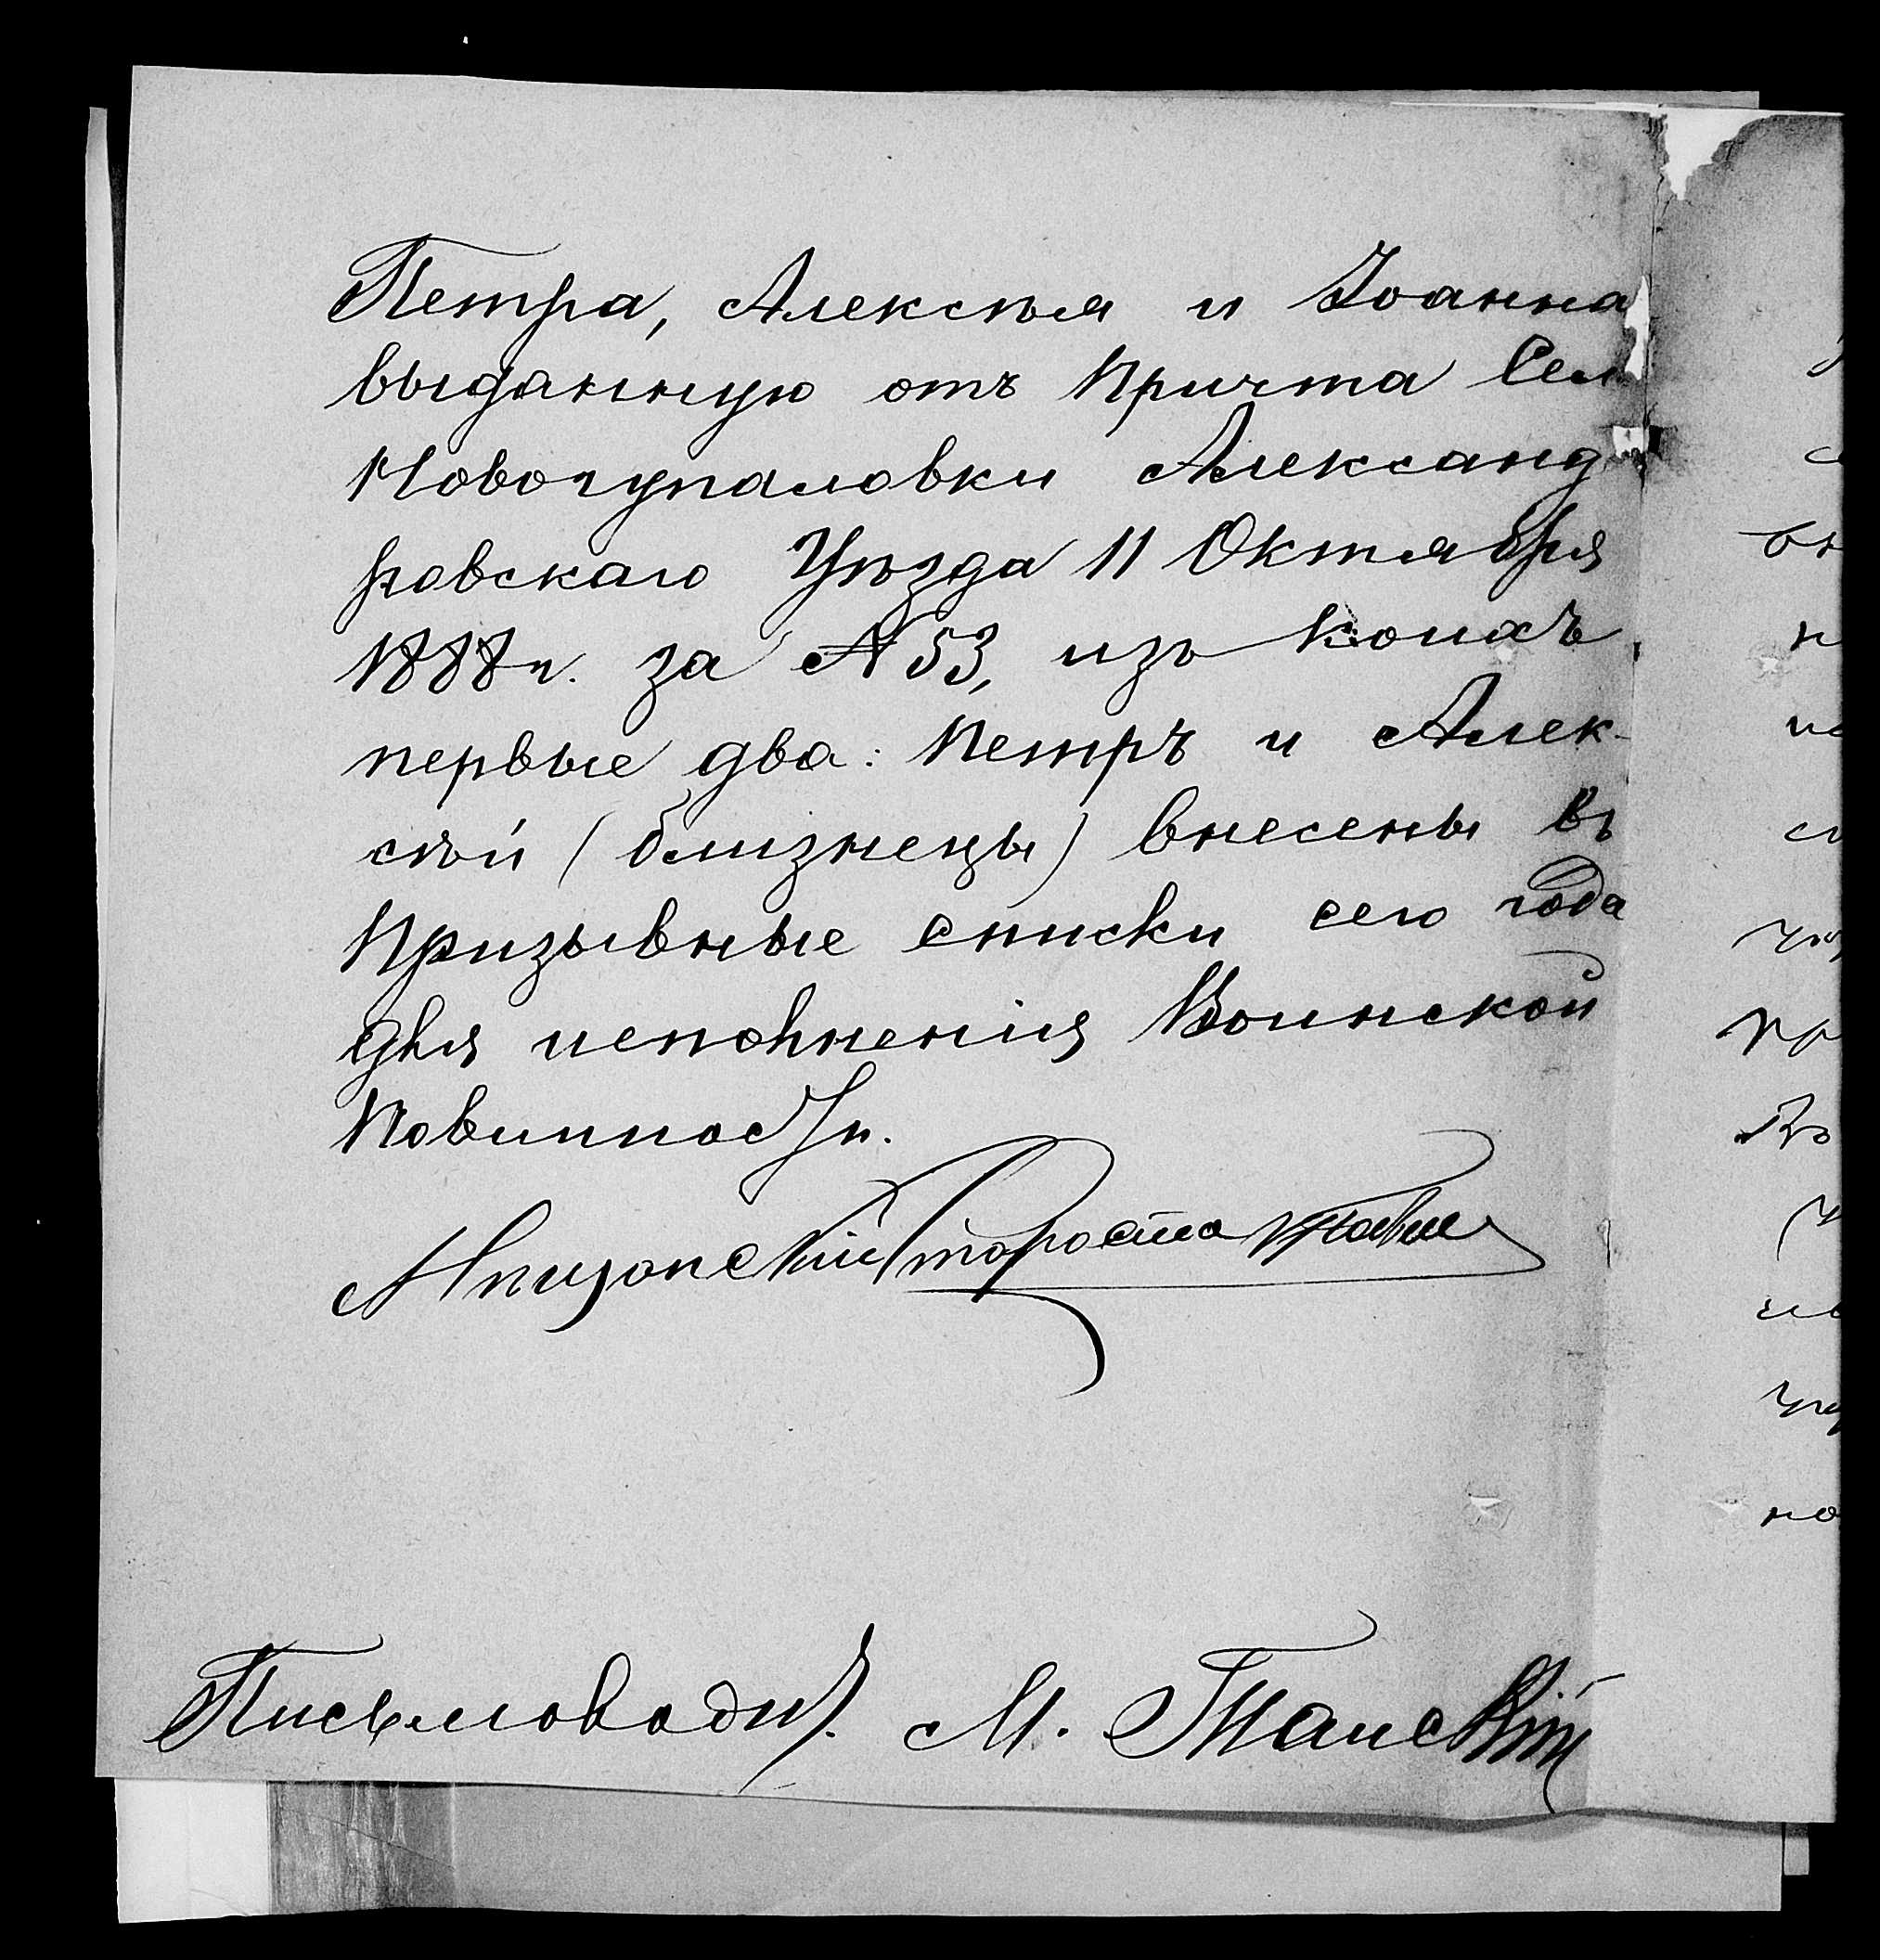 Петра, Алексѣя и Іоанна
выданную отъ Причта Сел
Новогупаловки Александ
ровскаго Уѣзда 11 Октября
1888 г. за № 53, изъ коихъ
первые два: Петръ и Алек-
сѣй (близнецы) внесены въ
Призывные списки сего года
для исполненія Воинской
Повинности.
Староста
Письмовод. М. Танскій